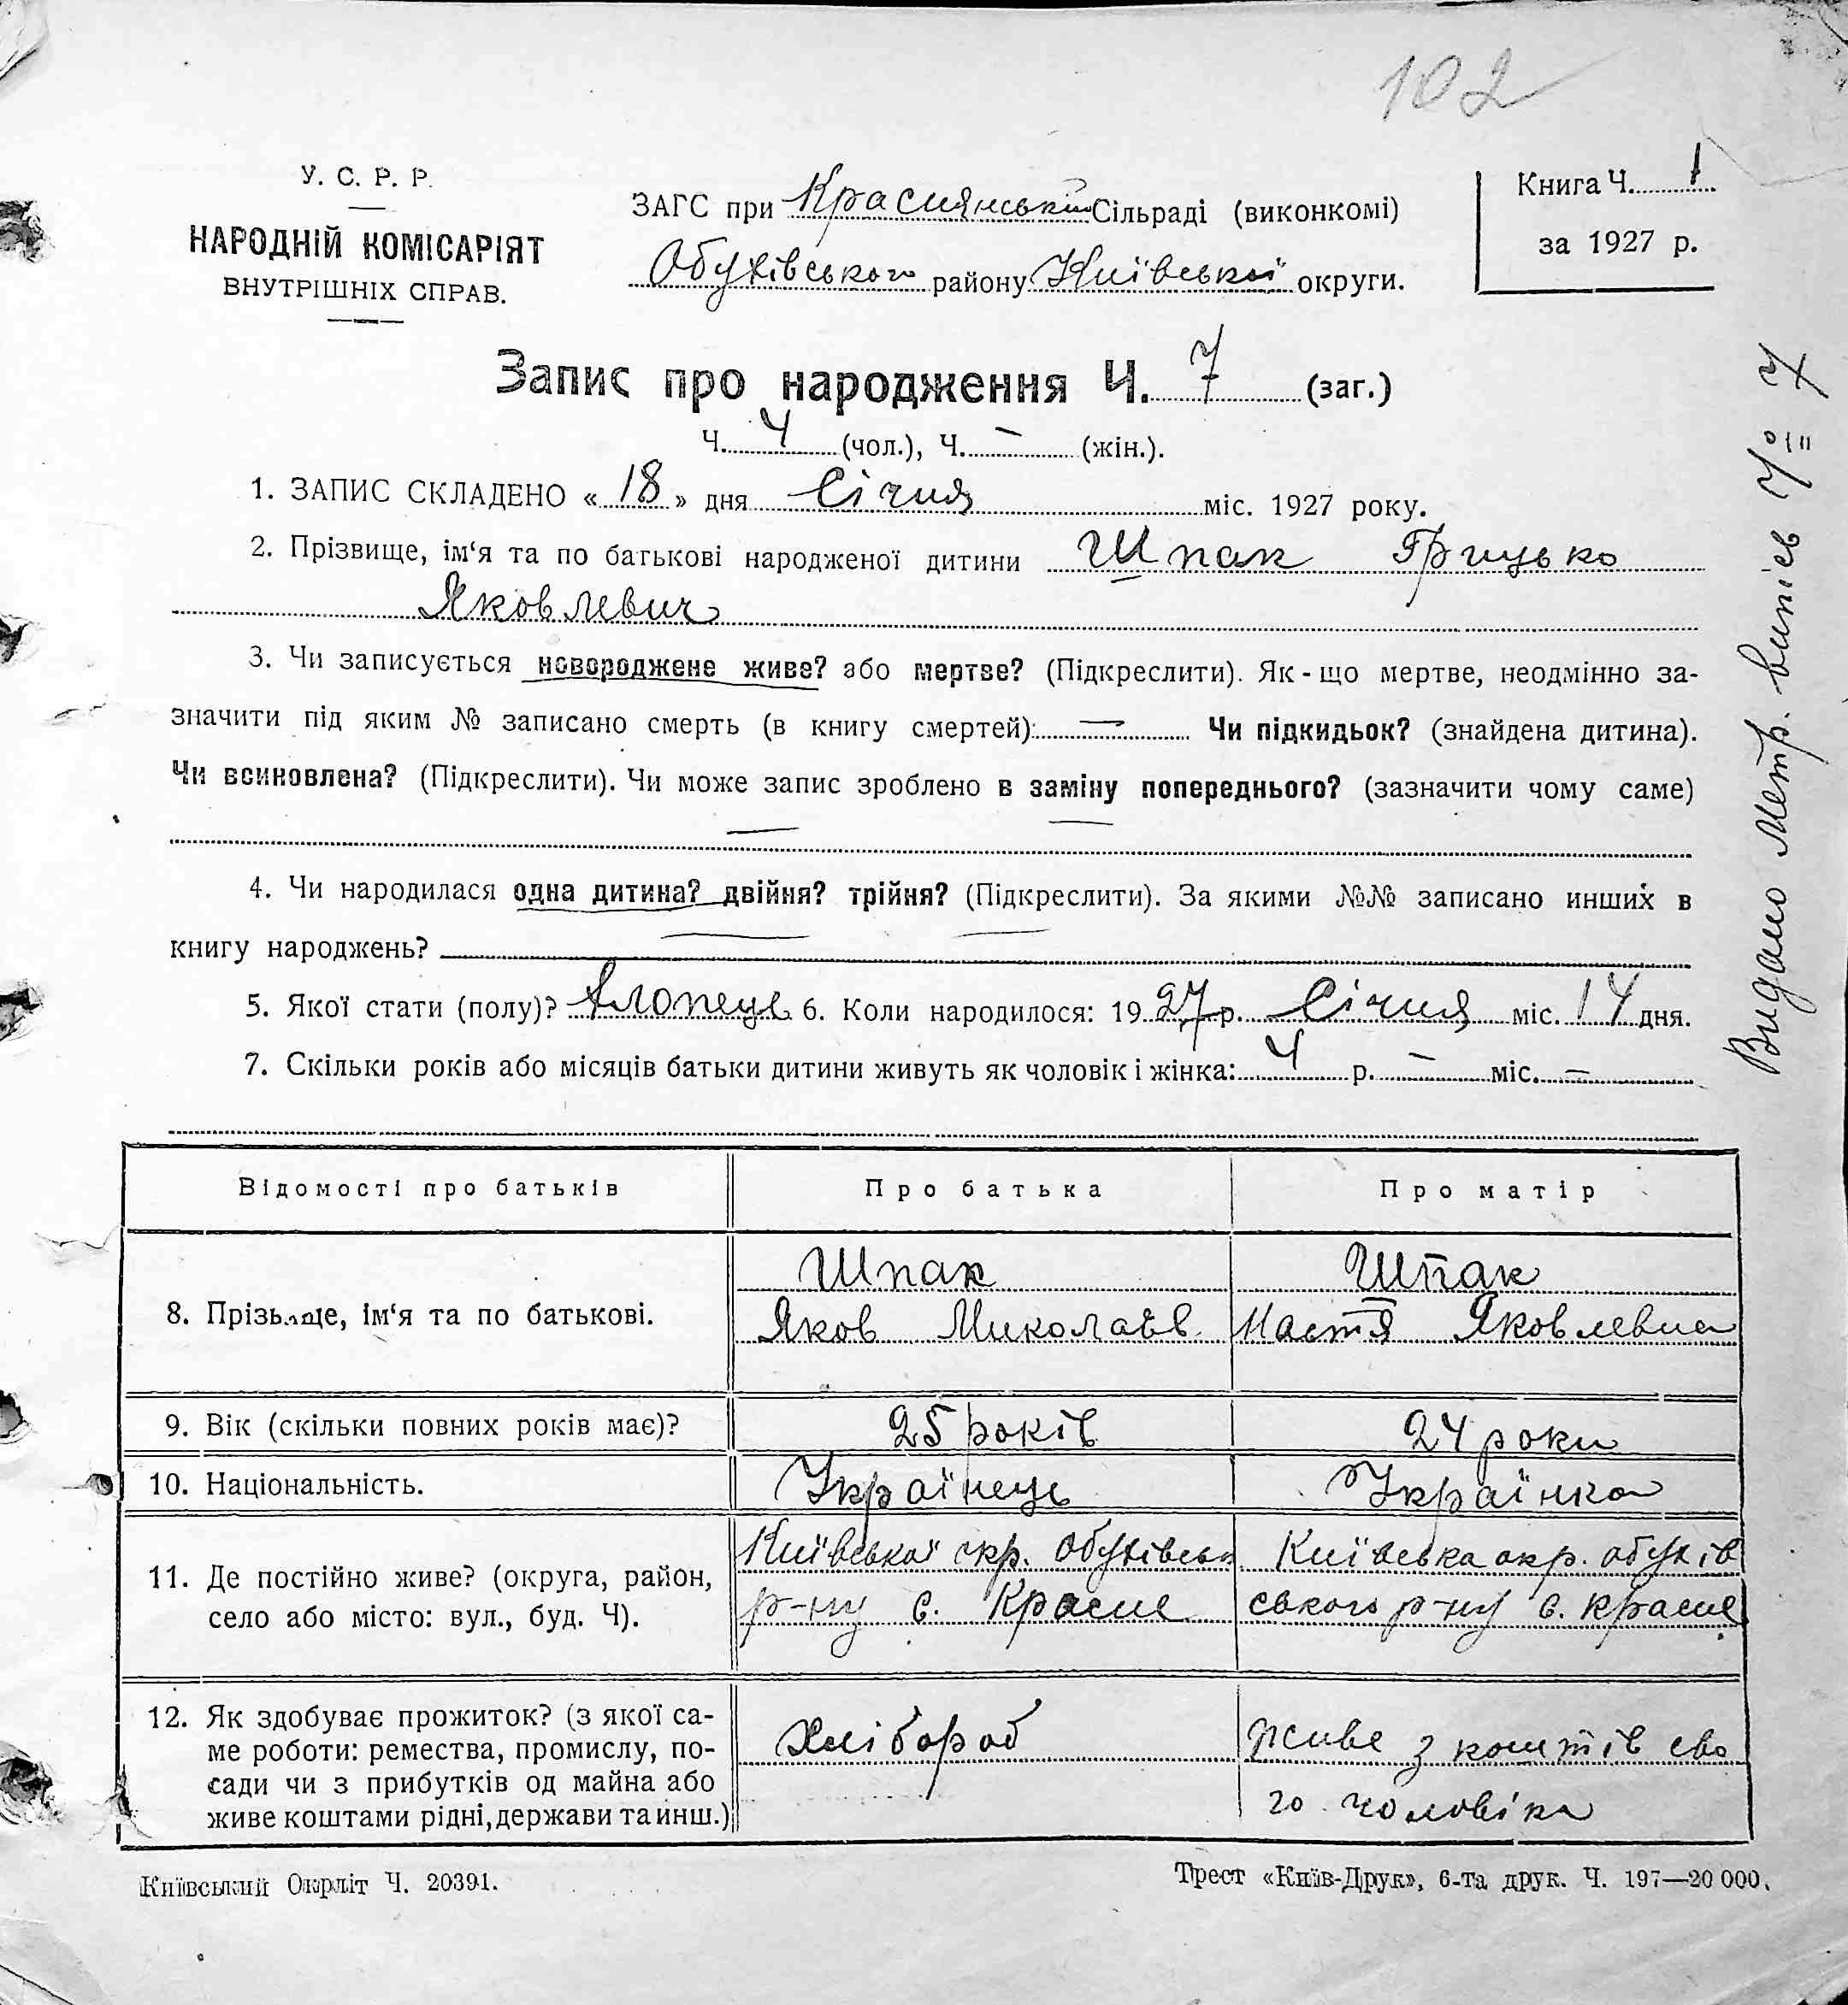 102
У. С. Р. Р.
НАРОДНІЙ КОМІСАРІЯТ
ВНУТРІШНІХ СПРАВ.
ЗАГС при Краснянській Сільраді (виконкомі)
Обухівського району Київської округи.
Книга Ч. 1
за 1927 р.
Запис про народження Ч. 7 (заг.)
Ч. 4 (чол.), Ч. – (жін.).
1. ЗАПИС СКЛАДЕНО «18» дня Січня міс. 1927 року.
2. Прізвище, ім‘я та по батькові народженої дитини Шпак Грицько
Яковлевич
3. Чи записується новороджене живе? або мертве? (Підкреслити). Як-що мертве, неодмінно за-
значити під яким № записано смерть (в книгу смертей): — Чи підкидьок? (знайдена дитина).
Чи всиновлена? (Підкреслити). Чи може запис зроблено в заміну попереднього? (зазначити чому саме)
— —
4. Чи народилася одна дитина? двійня? трійня? (Підкреслити). За якими №№ записано инших в
книгу народжень? — —
5. Якої стати (полу)? Хлопець 6. Коли народилося: 1927 р. Січня міс. 14 дня.
7. Скільки років або місяців батьки дитини живуть як чоловік і жінка: 4 р. – міс. –
Видано метр. випись № 7
Відомості про батьків
Про батька
Про матір
8. Прізвище, ім‘я та по батькові.
Шпак
Яков Миколаєв
Шпак
Настя Яковлевна
9. Вік (скільки повних років має)?
25 років
24 роки
10. Національність.
Українець
Українка
11. Де постійно живе? (округа, район,
село або місто: вул., буд. Ч).
Київської окр. Обухівськ
р-ну с. Красне
Київська окр. обухів
ського р-ну с. Красне
12. Як здобуває прожиток? (з якої са-
ме роботи: ремества, промислу, по-
сади чи з прибутків од майна або
живе коштами рідні, держави та инш.)
Хлібороб
живе з коштів сво
го чоловіка
Київський Окрліт Ч. 20391.
Трест «Київ-Друк», 6-та друк. Ч. 197—20 000.